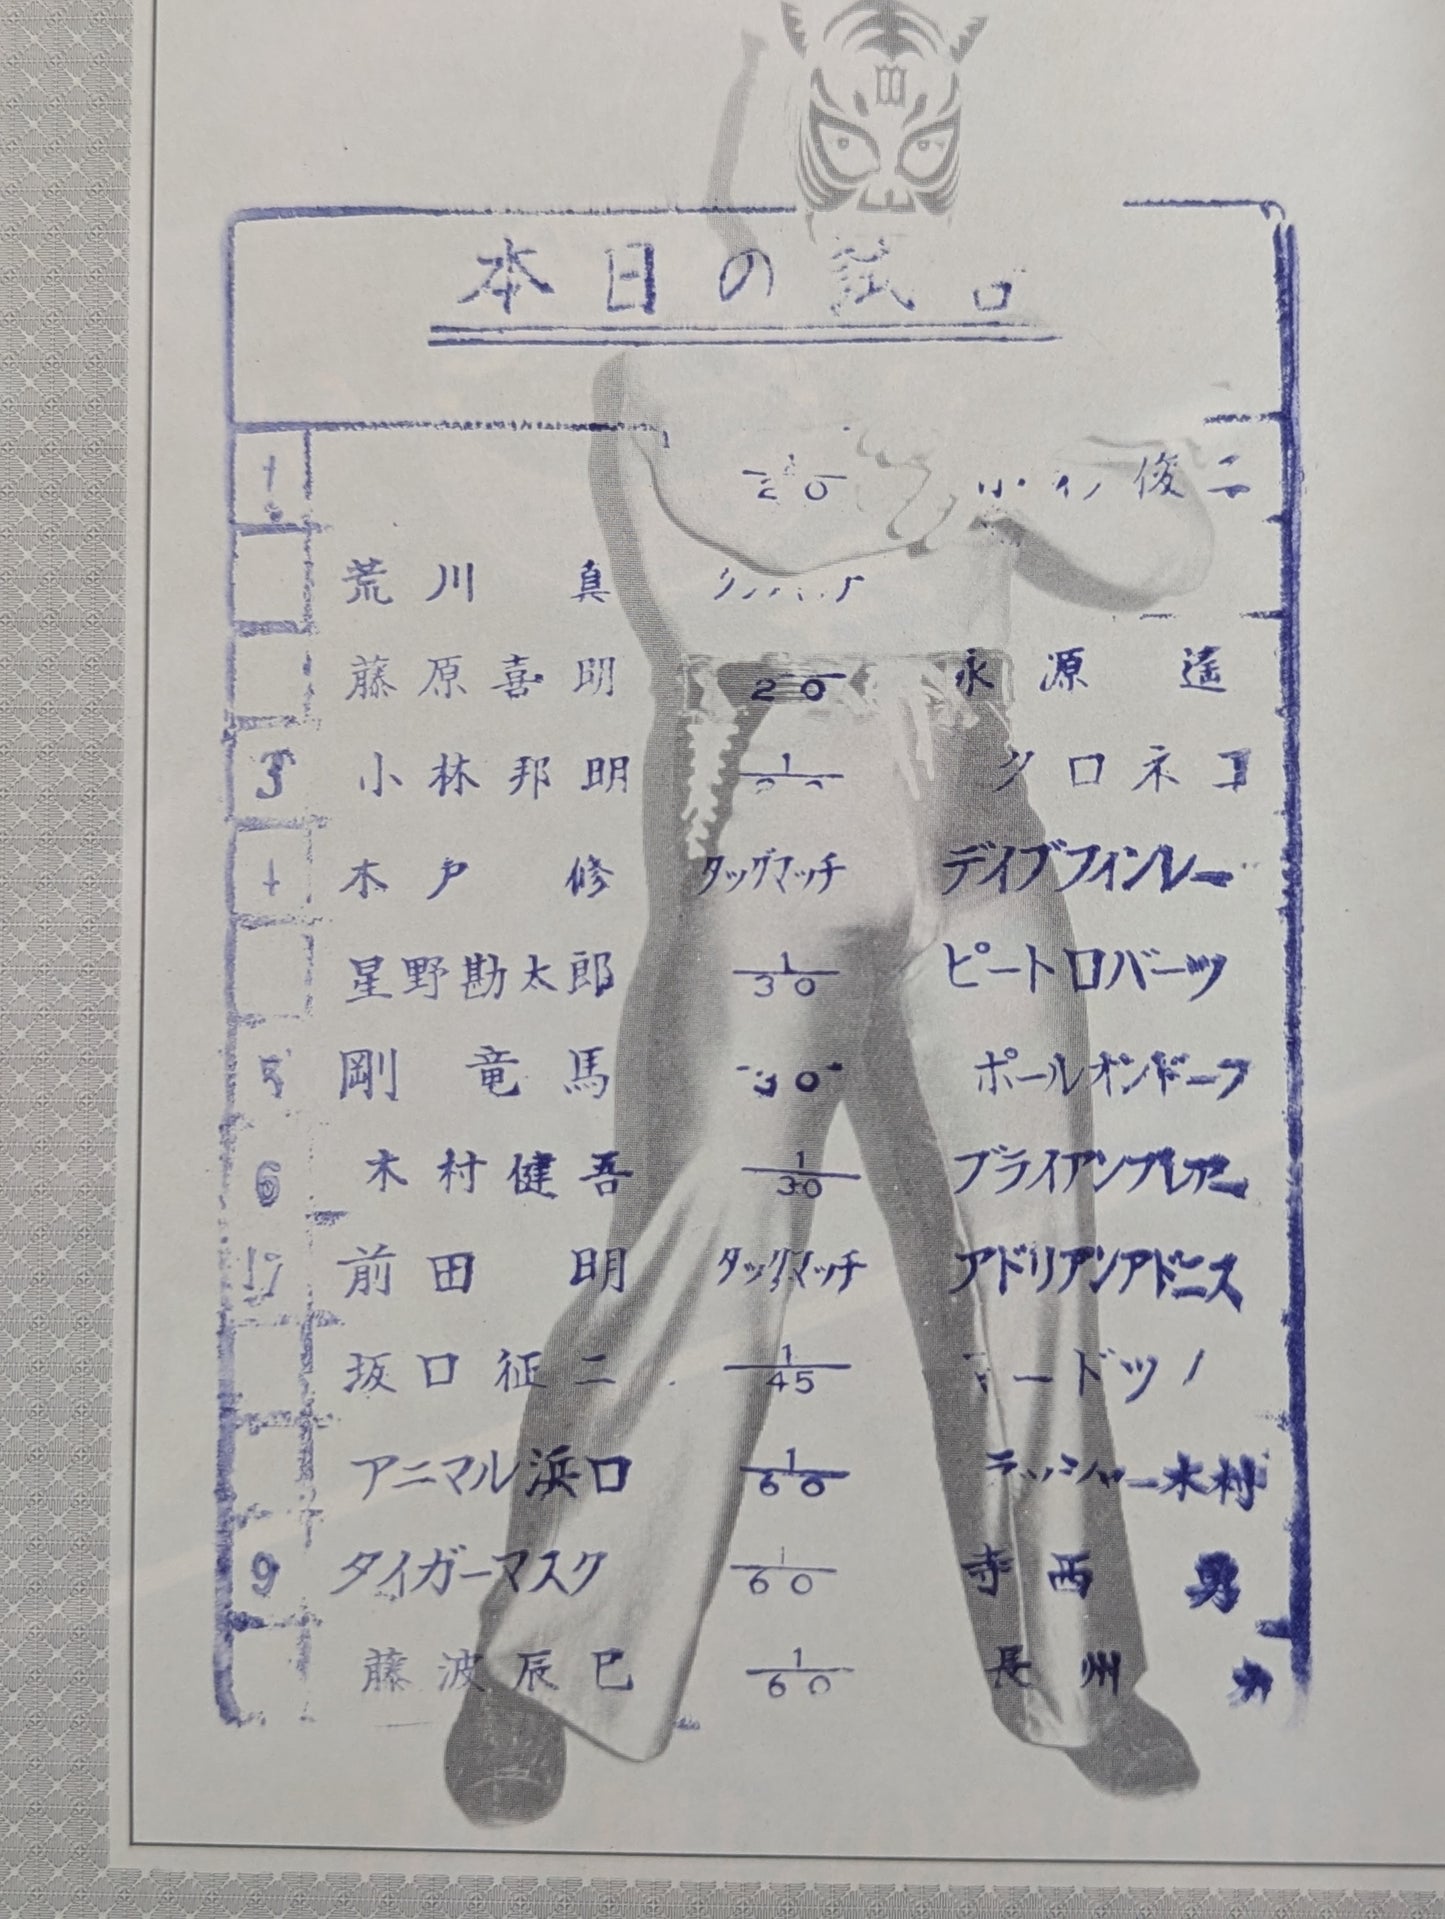 本日の試合
1 1/20 俊二
荒川 真
藤原喜明 20 永源 遥
3 小林邦明 1 クロネコ
4 木戸 修 タッグマッチ デイブフィンレー
星野勘太郎 1/30 ピートロバーツ
5 剛 竜馬 30 ポールオンドーフ
6 木村健吾 1/30 ブライアンブレアー
前田 明 タッグマッチ アドリアンアドニス
坂口征二 1/45
アニマル浜口 1/60 ラッシャー木村
9 タイガーマスク 1/60 寺西 勇
藤波辰巳 1/60 長州 力